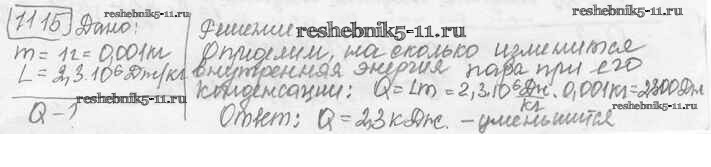 1115 Дано: Решение
m = 1г = 0,001кг Определим, на сколько изменится
L = 2,3·10⁶ Дж/кг внутренняя энергия пара при его
конденсации: Q = Lm = 2,3·10⁶ Дж/кг · 0,001кг = 2300 Дж
Q - ?
Ответ: Q = 2,3 кДж. - уменьшится
reshebnik5-11.ru
reshebnik5-11.ru
reshebnik5-11.ru
reshebnik5-11.ru
reshebnik5-11.ru
reshebnik5-11.ru